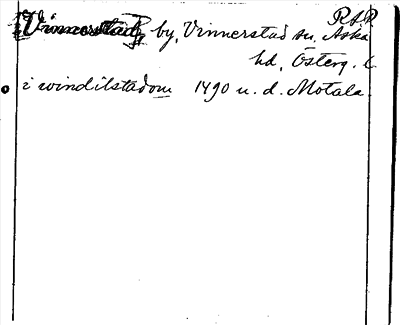 RAP
Vinnerstad by, Vinnerstad sn. Aska
hd, Österg. l.
i windilstadom 1490 u. d. Motala.